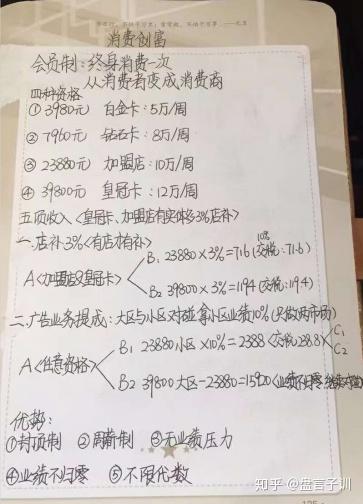 消费创富
会员制:终身消费一次
从消费者变成消费商
四种资格
① 3980元 白金卡:5万/周
② 7960元 钻石卡:8万/周
③ 23880元 加盟店:10万/周
④ 39800元 皇冠卡:12万/周
五项收入<皇冠卡、加盟店有实体给3%店补>
一.店补3%<有店才有补>
10%
B1 23880×3%=716(交税:71.6)
A<加盟店及皇冠卡>
B2 39800×3%=1194(交税:119.4)
二.广告业务提成:大区与小区对碰拿小区业绩10%(只做两市场)
B1 23880小区×10%=2388(交税238.8) C1
C2
A<任意资格>
B2 39800大区-23880=15920(业绩不归零
优势:
①封顶制 ②周薪制 ③无业绩压力
④业绩不归零 ⑤不限代数
知乎 @盘言子训